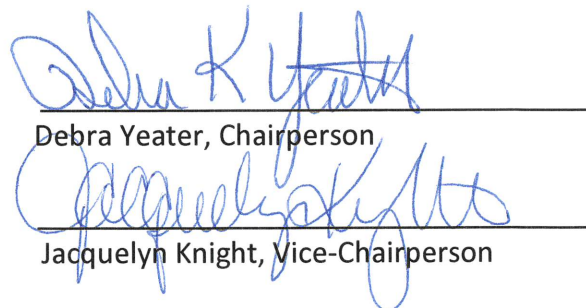 Debra K Yeater
Debra Yeater, Chairperson
Jacquelyn Knight
Jacquelyn Knight, Vice-Chairperson